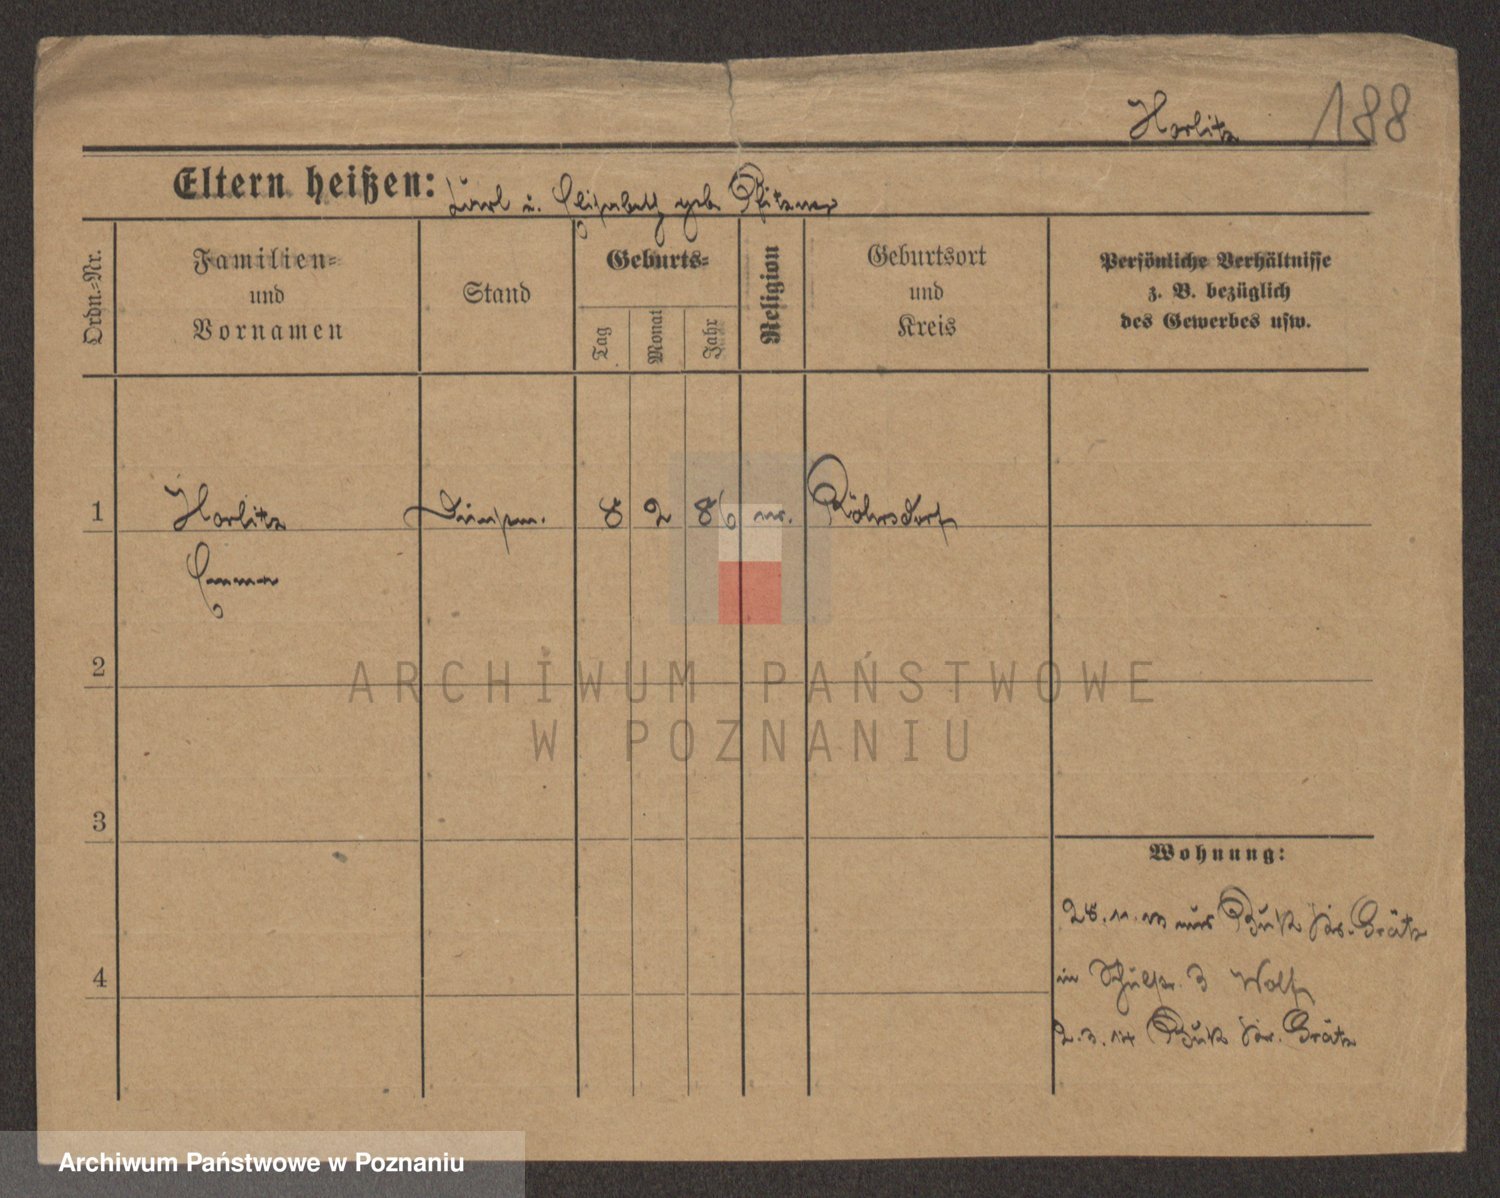 Horlitz 188
Eltern heißen: Karl u. Elisabeth geb. Pfitzner
Ordn.-Nr.
Familien-
und
Vornamen
Stand
Geburts-
Tag
Monat
Jahr
Religion
Geburtsort
und
Kreis
Persönliche Verhältnisse
z. B. bezüglich
des Gewerbes usw.
1 Horlitz 8 2 86 Röhrsdorf
Emma
2
3
4
Wohnung:
28.11.13 aus Buk Kr. Grätz
in Schulstr. 3 Wolf
2.3.14 Buk Kr. Grätz
ARCHIWUM PAŃSTWOWE
W POZNANIU
Archiwum Państwowe w Poznaniu